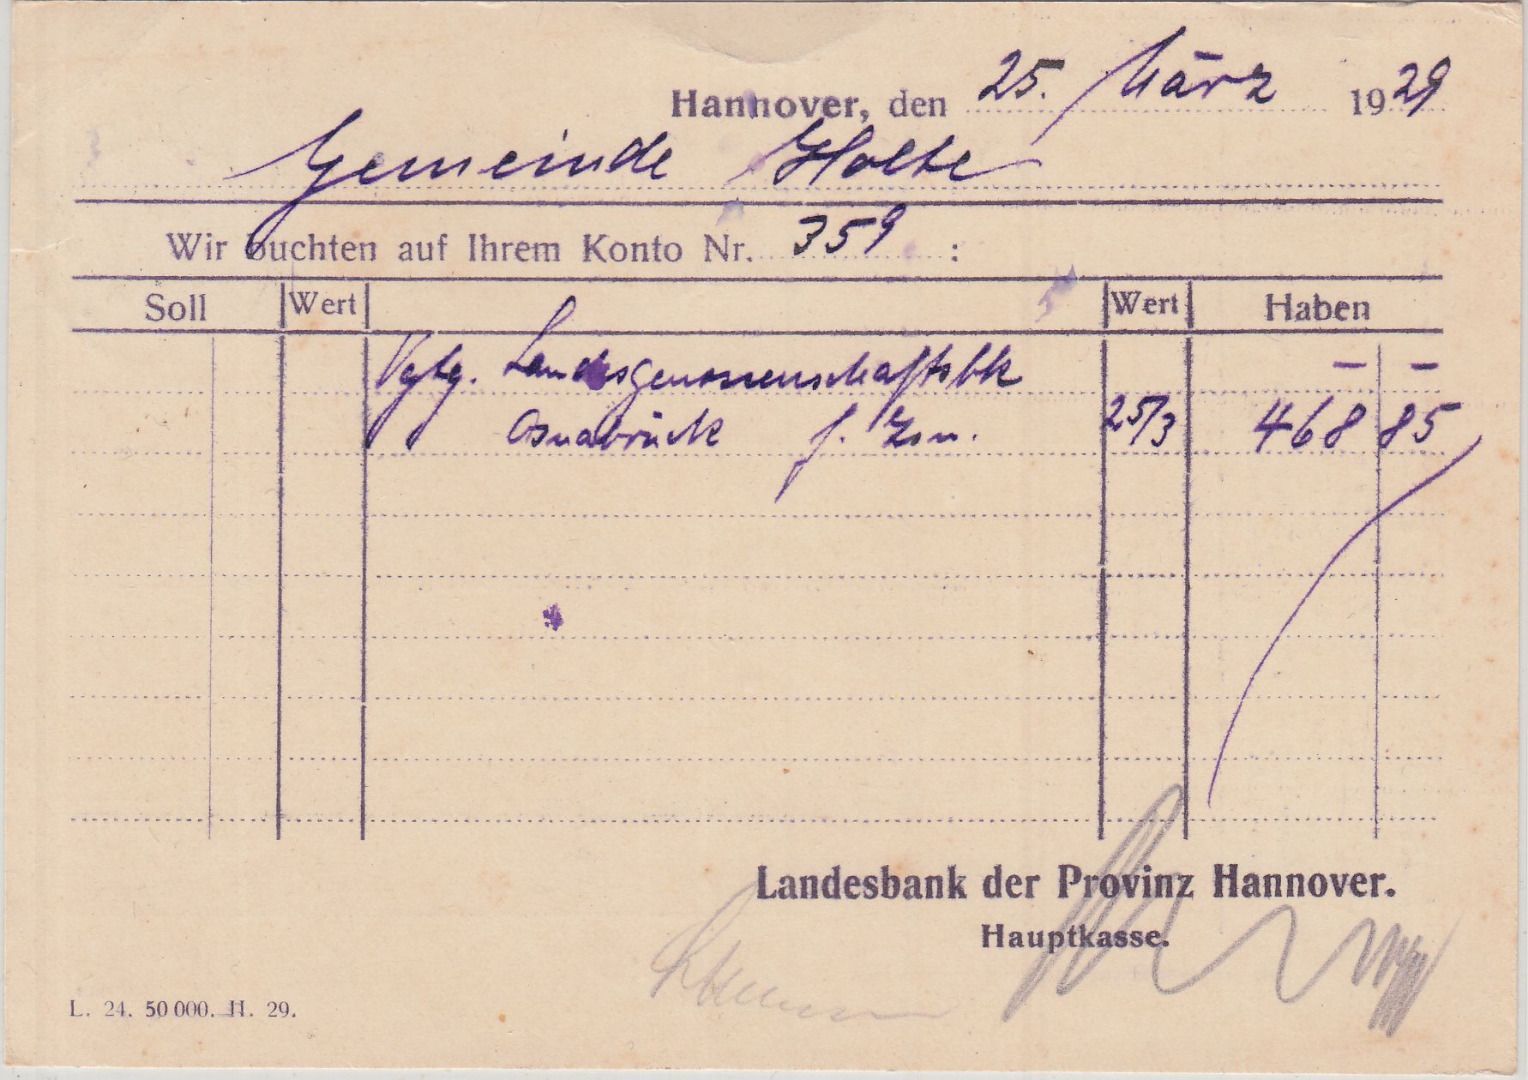 Hannover, den 25. März 1929
Gemeinde Holte
Wir buchten auf Ihrem Konto Nr. 359 :
Soll Wert Wert Haben
Vgtg. Landesgenossenschaftsbk — —
Osnabrück f. 25/3 468 85
Landesbank der Provinz Hannover.
Hauptkasse.
L. 24. 50 000. II. 29.